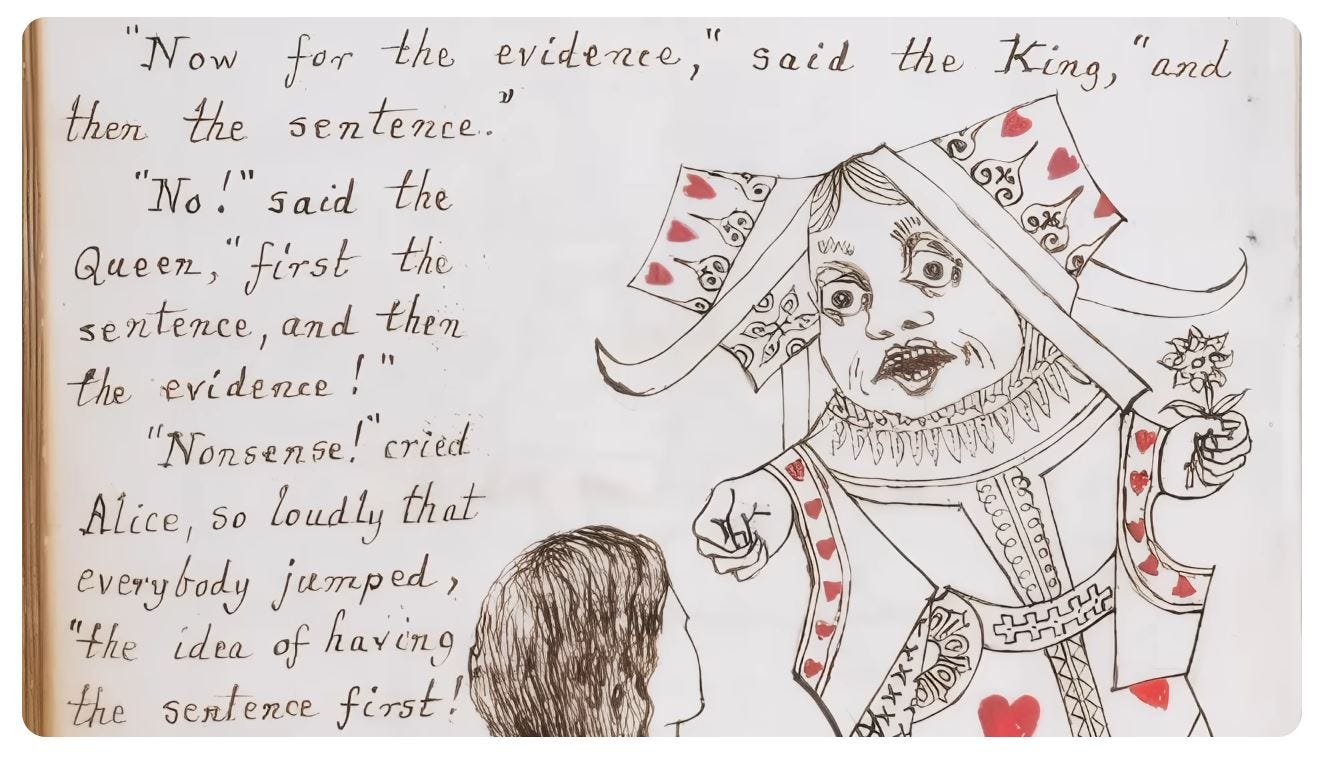 "Now for the evidence," said the King, "and
then the sentence."
"No!" said the
Queen, "first the
sentence, and then
the evidence!"
"Nonsense!" cried
Alice, so loudly that
everybody jumped,
"the idea of having
the sentence first!